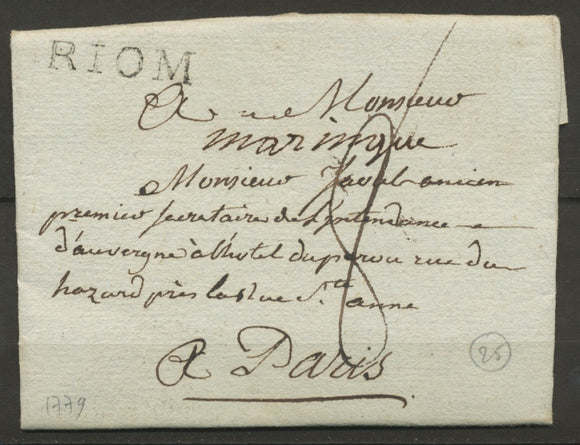 RIOM
A Monsieur
maringue
Monsieur Javel ancien
premier secretaire de l'intendance
d'auvergne à l'hotel du perou rue du
hazard près la Rue Ste anne
8
A Paris
25
1779